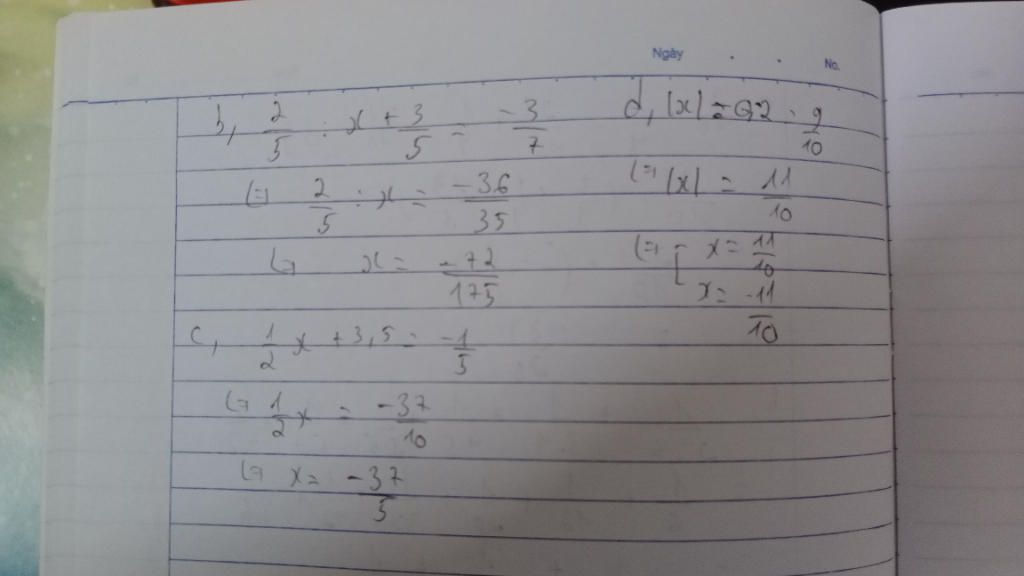 Ngày . . No.
b, 2/5 : x + 3/5 = -3/7
(=) 2/5 : x = -36/35
(=) x = -72/175
c, 1/2 x + 3,5 = -1/5
(=) 1/2 x = -37/10
(=) x = -37/5
d, |x| = 92 . 9/10
(=) |x| = 11/10
(=) [ x = 11/10
x = -11/10